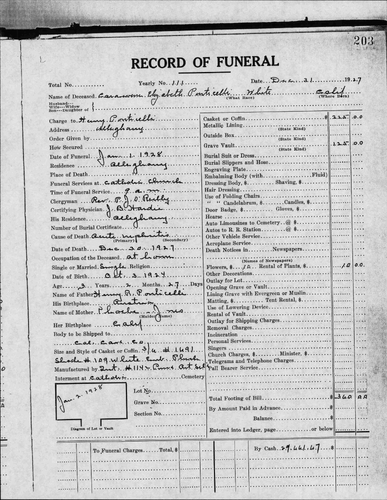 203
RECORD OF FUNERAL
Total No. Yearly No. 111 Date Dec. 31 1927
Name of Deceased Elizabeth Ponticelli White Calif
(What Race) (Where Born)
Husband—
Wife—Widow
Son—Daughter of
Charge to Henry Ponticelli
Address Alleghany
Order Given by
How Secured
Date of Funeral Jan. 1 1928
Residence Alleghany
Place of Death
Funeral Services at Catholic Church
Time of Service 9 a.m.
Clergyman Rev. P. J. O. Reilly
Certifying Physician J. B.
His Residence Alleghany
Number of Burial Certificate
Cause of Death Acute nephritis
(Primary) (Secondary)
Date of Death Dec 30, 1927
Occupation of the Deceased at home
Single or Married Single Religion
Date of Birth Oct. 3 1924
Age 3 Years 2 Months 27 Days
Name of Father Henry R. Ponticelli
His Birthplace
Name of Mother Phoebe Jones
(Maiden Name)
Her Birthplace Calif
Body to be Shipped to
Cal. Cas. Co.
Size and Style of Casket or Coffin 3/6 # 1691
Shade # 109 White Emb. Plush
Manufactured by Int. # 1142 Art Silk
Interment at Catholic Cemetery
Jan. 2. 1928
Lot No.
Grave No.
Section No.
Diagram of Lot or Vault
Casket or Coffin $ 225 00
Metallic Lining
(State Kind)
Outside Box
(State Kind)
Grave Vault 125 00
(State Kind)
Burial Suit or Dress
Burial Slippers and Hose
Engraving Plate
Embalming Body (with Fluid)
Dressing Body, $ Shaving, $
Hair Dressing
Use of Folding Chairs
" " Candelabrum, $ Candles, $
Door Badge, $ Gloves, $
Hearse
Auto Limousines to Cemetery @ $
Autos to R. R. Station @ $
Other Vehicle Service
Aeroplane Service
Death Notices in Newspapers
(Names of Newspapers)
Flowers, $ 10 Rental of Plants, $ 10 00
Other Decorations
Outlay for Lot
Opening Grave or Vault
Lining Grave with Evergreen or Muslin
Matting, $ Tent Rental, $
Use of Lowering Device
Rental of Vault
Outlay for Shipping Charges
Removal Charges
Incineration
Personal Services
Singers
Church Charges, $ Minister, $
Telegrams and Telephone Charges
Pall Bearer Service
Total Footing of Bill $ 360 00
By Amount Paid in Advance
Balance
Entered into Ledger, page or below
To Funeral Charges Total, $ By Cash